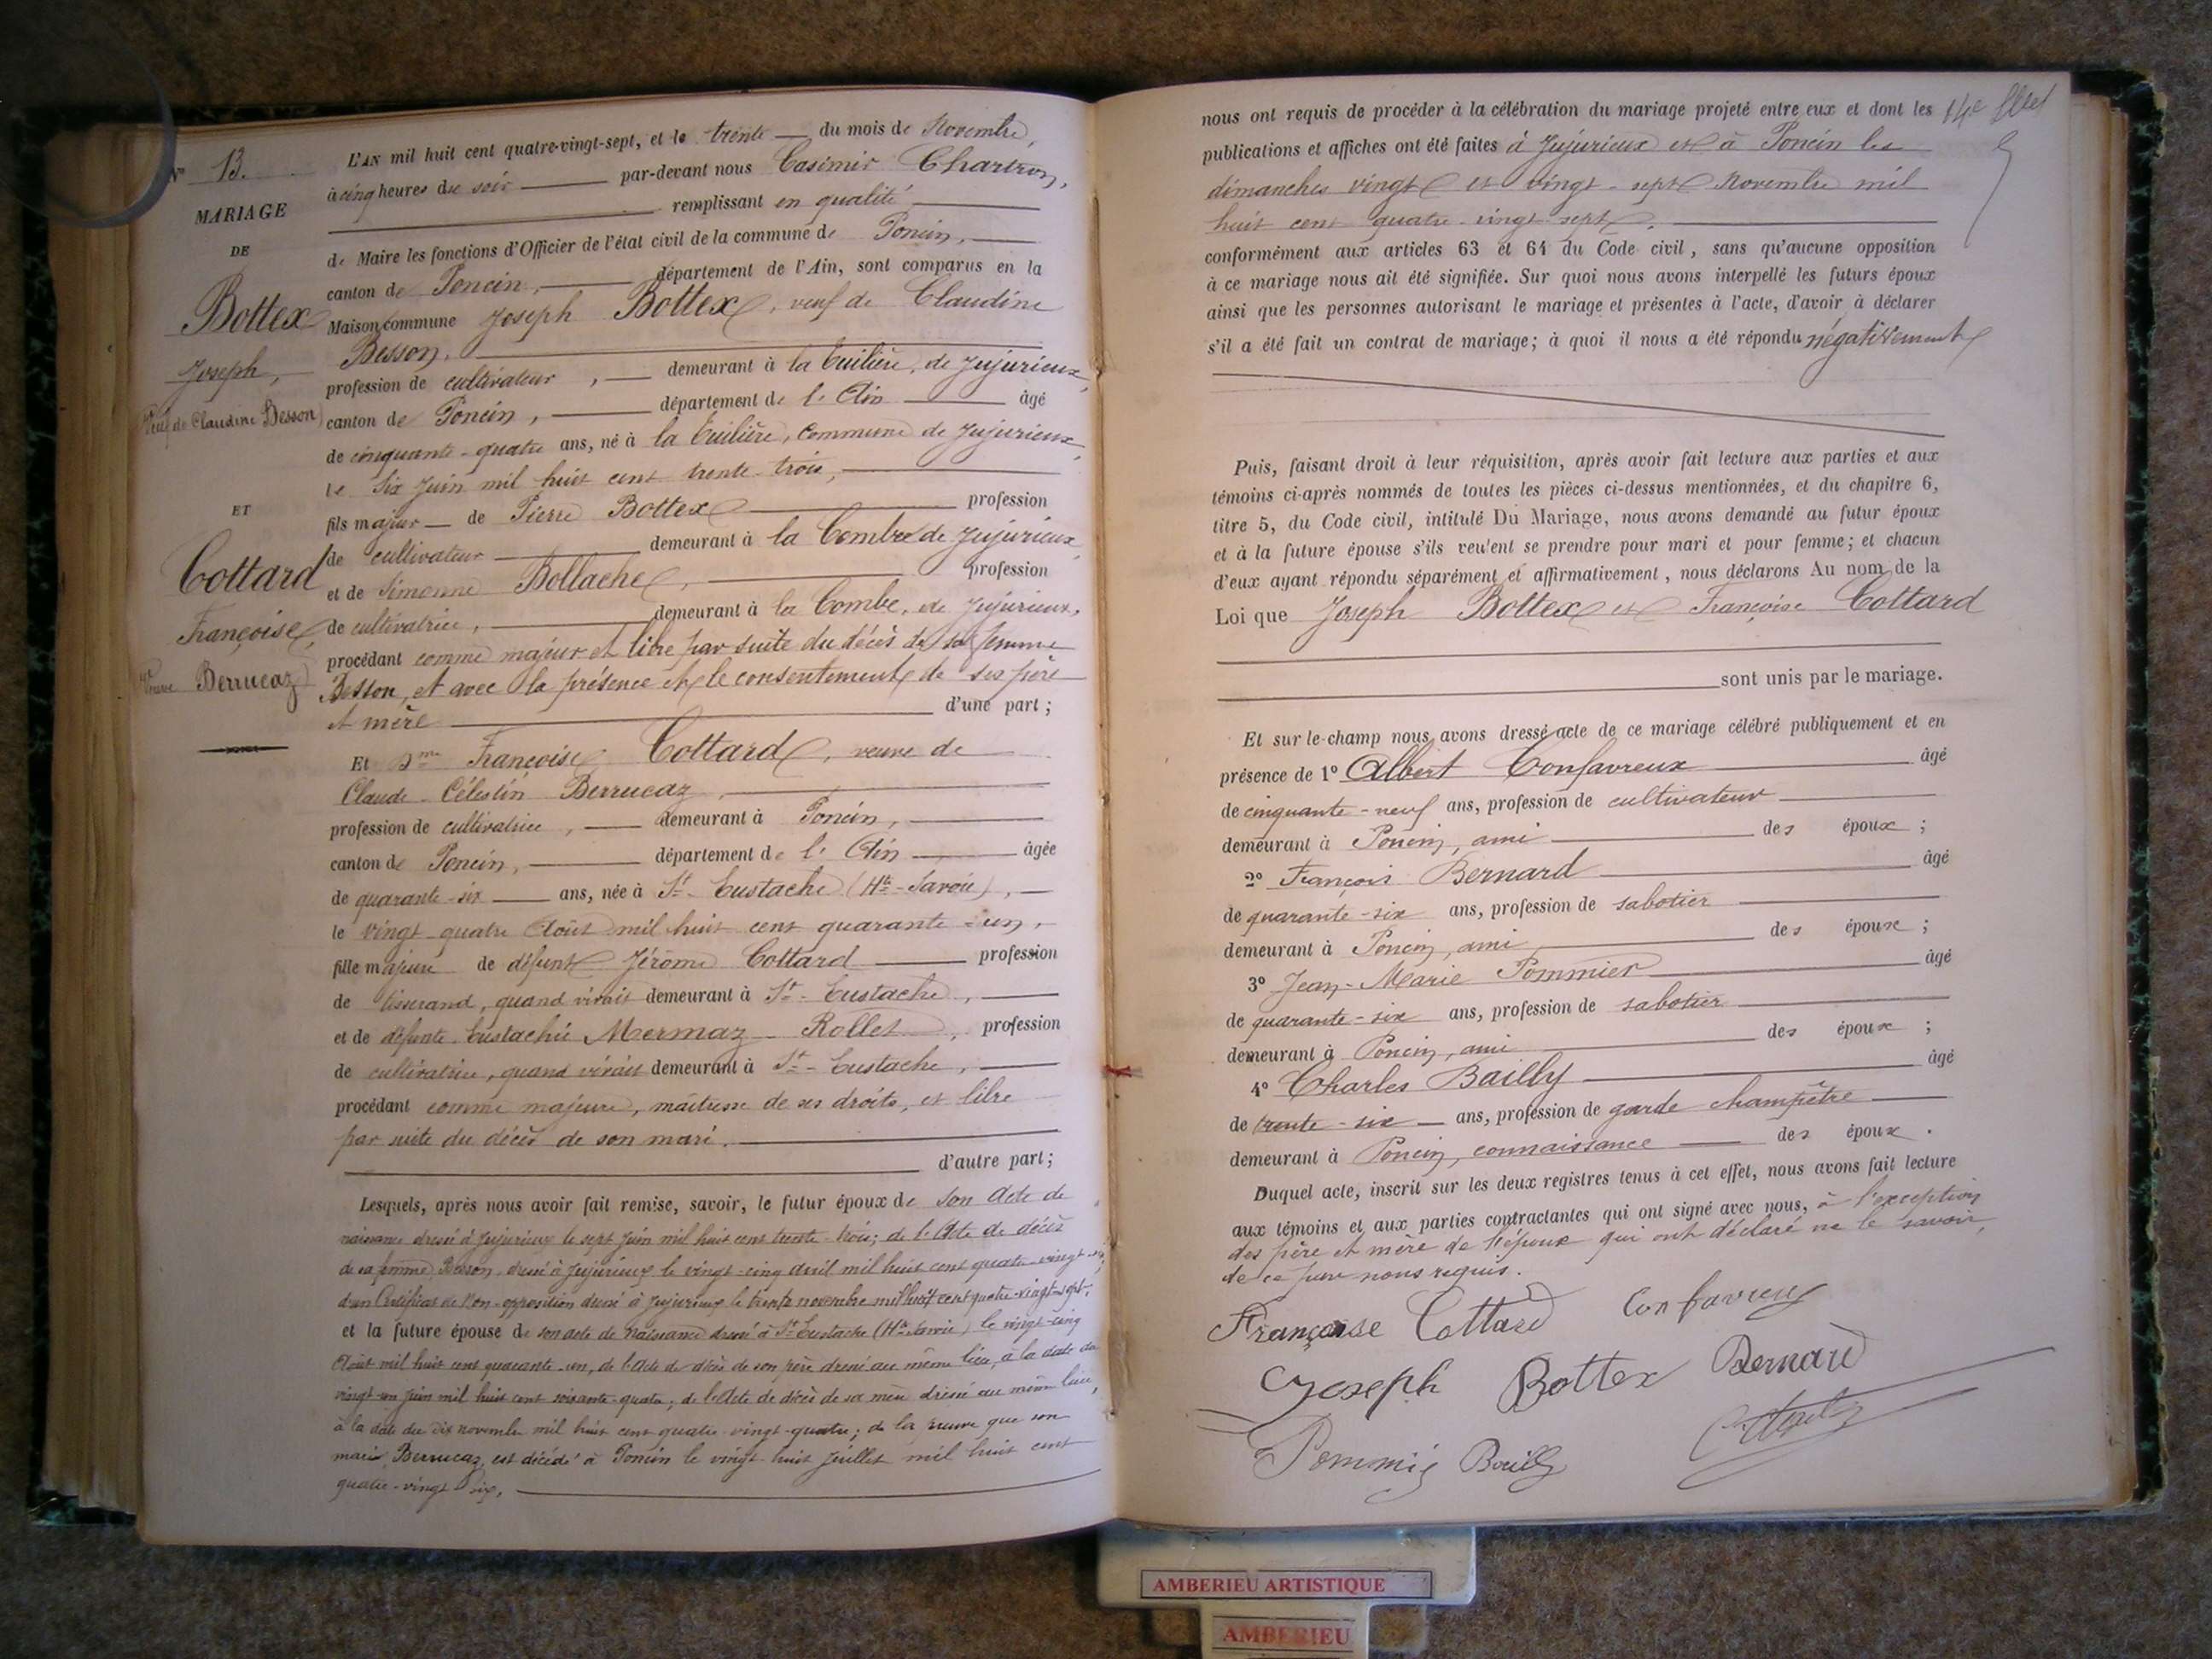 N° 13.
MARIAGE
DE
Bottex
Joseph,
veuf de Claudine Besson
ET
Cottard
Françoise,
veuve Berrucaz
L'AN mil huit cent quatre-vingt-sept, et le trente du mois de Novembre,
à cinq heures du soir par-devant nous Casimir Chartron,
remplissant en qualité
de Maire les fonctions d'Officier de l'état civil de la commune de Poncin,
canton de Poncin, département de l'Ain, sont comparus en la
Maison commune Joseph Bottex, veuf de Claudine
Besson,
profession de cultivateur, demeurant à la Tuilière, de Jujurieux,
canton de Poncin, département de l'Ain âgé
de cinquante-quatre ans, né à la Tuilière, commune de Jujurieux,
le six Juin mil huit cent trente-trois,
fils majeur de Pierre Bottex profession
de cultivateur demeurant à la Combe de Jujurieux,
et de Simonne Bollache, profession
de cultivatrice, demeurant à la Combe, de Jujurieux,
procédant comme majeur et libre par suite du décès de sa femme
Besson, et avec la présence et le consentement de ses père
et mère d'une part;
Et Dme Françoise Cottard, veuve de
Claude-Célestin Berrucaz,
profession de cultivatrice, demeurant à Poncin,
canton de Poncin, département de l'Ain âgée
de quarante-six ans, née à St-Eustache (Hte-Savoie),
le vingt-quatre Août mil huit cent quarante-un,
fille majeure de défunt Jérôme Cottard profession
de tisserand, quand vivait demeurant à St-Eustache,
et de défunte Eustachie Mermaz-Rollet, profession
de cultivatrice, quand vivait demeurant à St-Eustache,
procédant comme majeure, maîtresse de ses droits, et libre
par suite du décès de son mari.
d'autre part;
Lesquels, après nous avoir fait remise, savoir, le futur époux de son Acte de
naissance dressé à Jujurieux le sept Juin mil huit cent trente-trois; de l'Acte de décès
de sa femme Besson, dressé à Jujurieux le vingt-cinq Avril mil huit cent quatre-vingt-
d'un Certificat de Non-opposition dressé à Jujurieux le trente novembre mil huit cent quatre-vingt-sept;
et la future épouse de son acte de naissance dressé à St-Eustache (Hte-Savoie) le vingt-cinq
Août mil huit cent quarante-un, de l'Acte de décès de son père dressé au même lieu, à la date du
vingt-un Juin mil huit cent soixante-quatre; de l'Acte de décès de sa mère dressé au même lieu,
à la date du dix novembre mil huit cent quatre-vingt-quatre; de la preuve que son
mari, Berrucaz, est décédé à Poncin le vingt-huit Juillet mil huit cent
quatre-vingt-six,
nous ont requis de procéder à la célébration du mariage projeté entre eux et dont les
publications et affiches ont été faites à Jujurieux et à Poncin les
dimanches vingt et vingt-sept Novembre mil
huit cent quatre-vingt-sept,
conformément aux articles 63 et 64 du Code civil, sans qu'aucune opposition
à ce mariage nous ait été signifiée. Sur quoi nous avons interpellé les futurs époux
ainsi que les personnes autorisant le mariage et présentes à l'acte, d'avoir à déclarer
s'il a été fait un contrat de mariage; à quoi il nous a été répondu négativement
Puis, faisant droit à leur réquisition, après avoir fait lecture aux parties et aux
témoins ci-après nommés de toutes les pièces ci-dessus mentionnées, et du chapitre 6,
titre 5, du Code civil, intitulé Du Mariage, nous avons demandé au futur époux
et à la future épouse s'ils veulent se prendre pour mari et pour femme; et chacun
d'eux ayant répondu séparément et affirmativement, nous déclarons Au nom de la
Loi que Joseph Bottex et Françoise Cottard
sont unis par le mariage.
Et sur-le-champ nous avons dressé acte de ce mariage célébré publiquement et en
présence de 1° Albert Confavreux âgé
de cinquante-neuf ans, profession de cultivateur
demeurant à Poncin, ami des époux;
2° François Bernard âgé
de quarante-six ans, profession de sabotier
demeurant à Poncin, ami des époux;
3° Jean-Marie Pommier âgé
de quarante-six ans, profession de sabotier
demeurant à Poncin, ami des époux;
4° Charles Bailly âgé
de trente-six ans, profession de garde champêtre
demeurant à Poncin, connaissance des époux.
Duquel acte, inscrit sur les deux registres tenus à cet effet, nous avons fait lecture
aux témoins et aux parties contractantes qui ont signé avec nous, à l'exception
des père et mère de l'époux qui ont déclaré ne le savoir,
de ce par nous requis.
Françoise Cottard Confavreux
Joseph Bottex Bernard
Pommié Bailly
AMBERIEU ARTISTIQUE
AMBERIEU